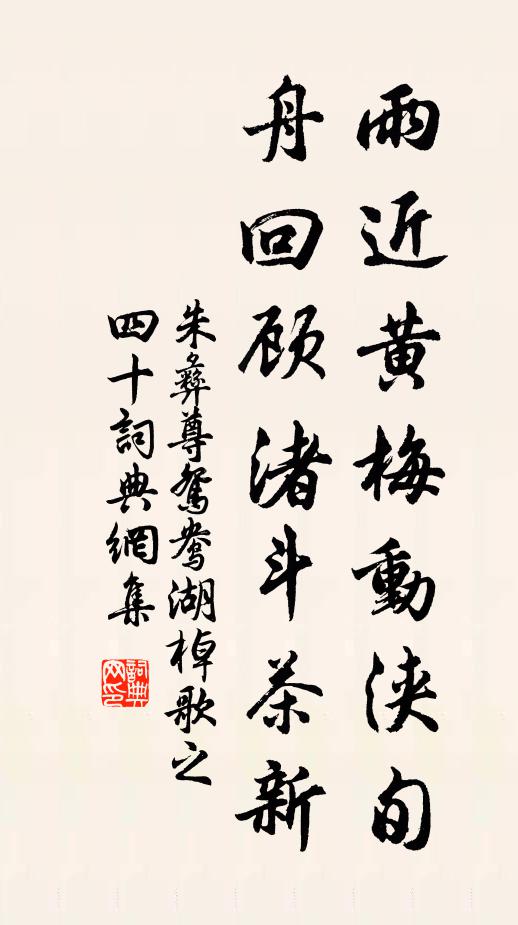 雨近黄梅動浹旬
舟回顾渚斗茶新
朱彝尊鴛鴦湖棹歌之
四十詞典網集
詞典网印